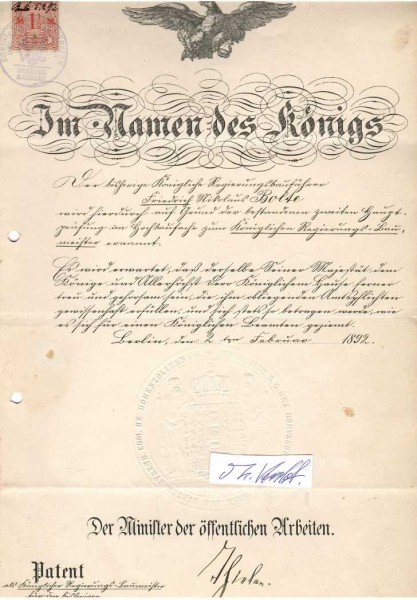 1½
M. M.
Im Namen des Königs
Der bisherige Königliche Regierungsbauführer
Friedrich Nikolaus Bolte
wird hierdurch auf Grund der bestandenen zweiten Haupt-
prüfung im Hochbaufache zum Königlichen Regierungs-Bau-
meister ernannt.
Es wird erwartet, daß derselbe Seiner Majestät dem
Könige und Allerhöchst Dero Königlichem Hause ferner
treu und gehorsam sein, die ihm obliegenden Amtspflichten
gewissenhaft erfüllen, und sich stets so betragen werde, wie
es sich für einen Königlichen Beamten geziemt.
Berlin, den 2 ten Februar 1892.
Der Minister der öffentlichen Arbeiten.
Thielen.
Patent
als Königlicher Regierungs-Baumeister
für den bisherigen